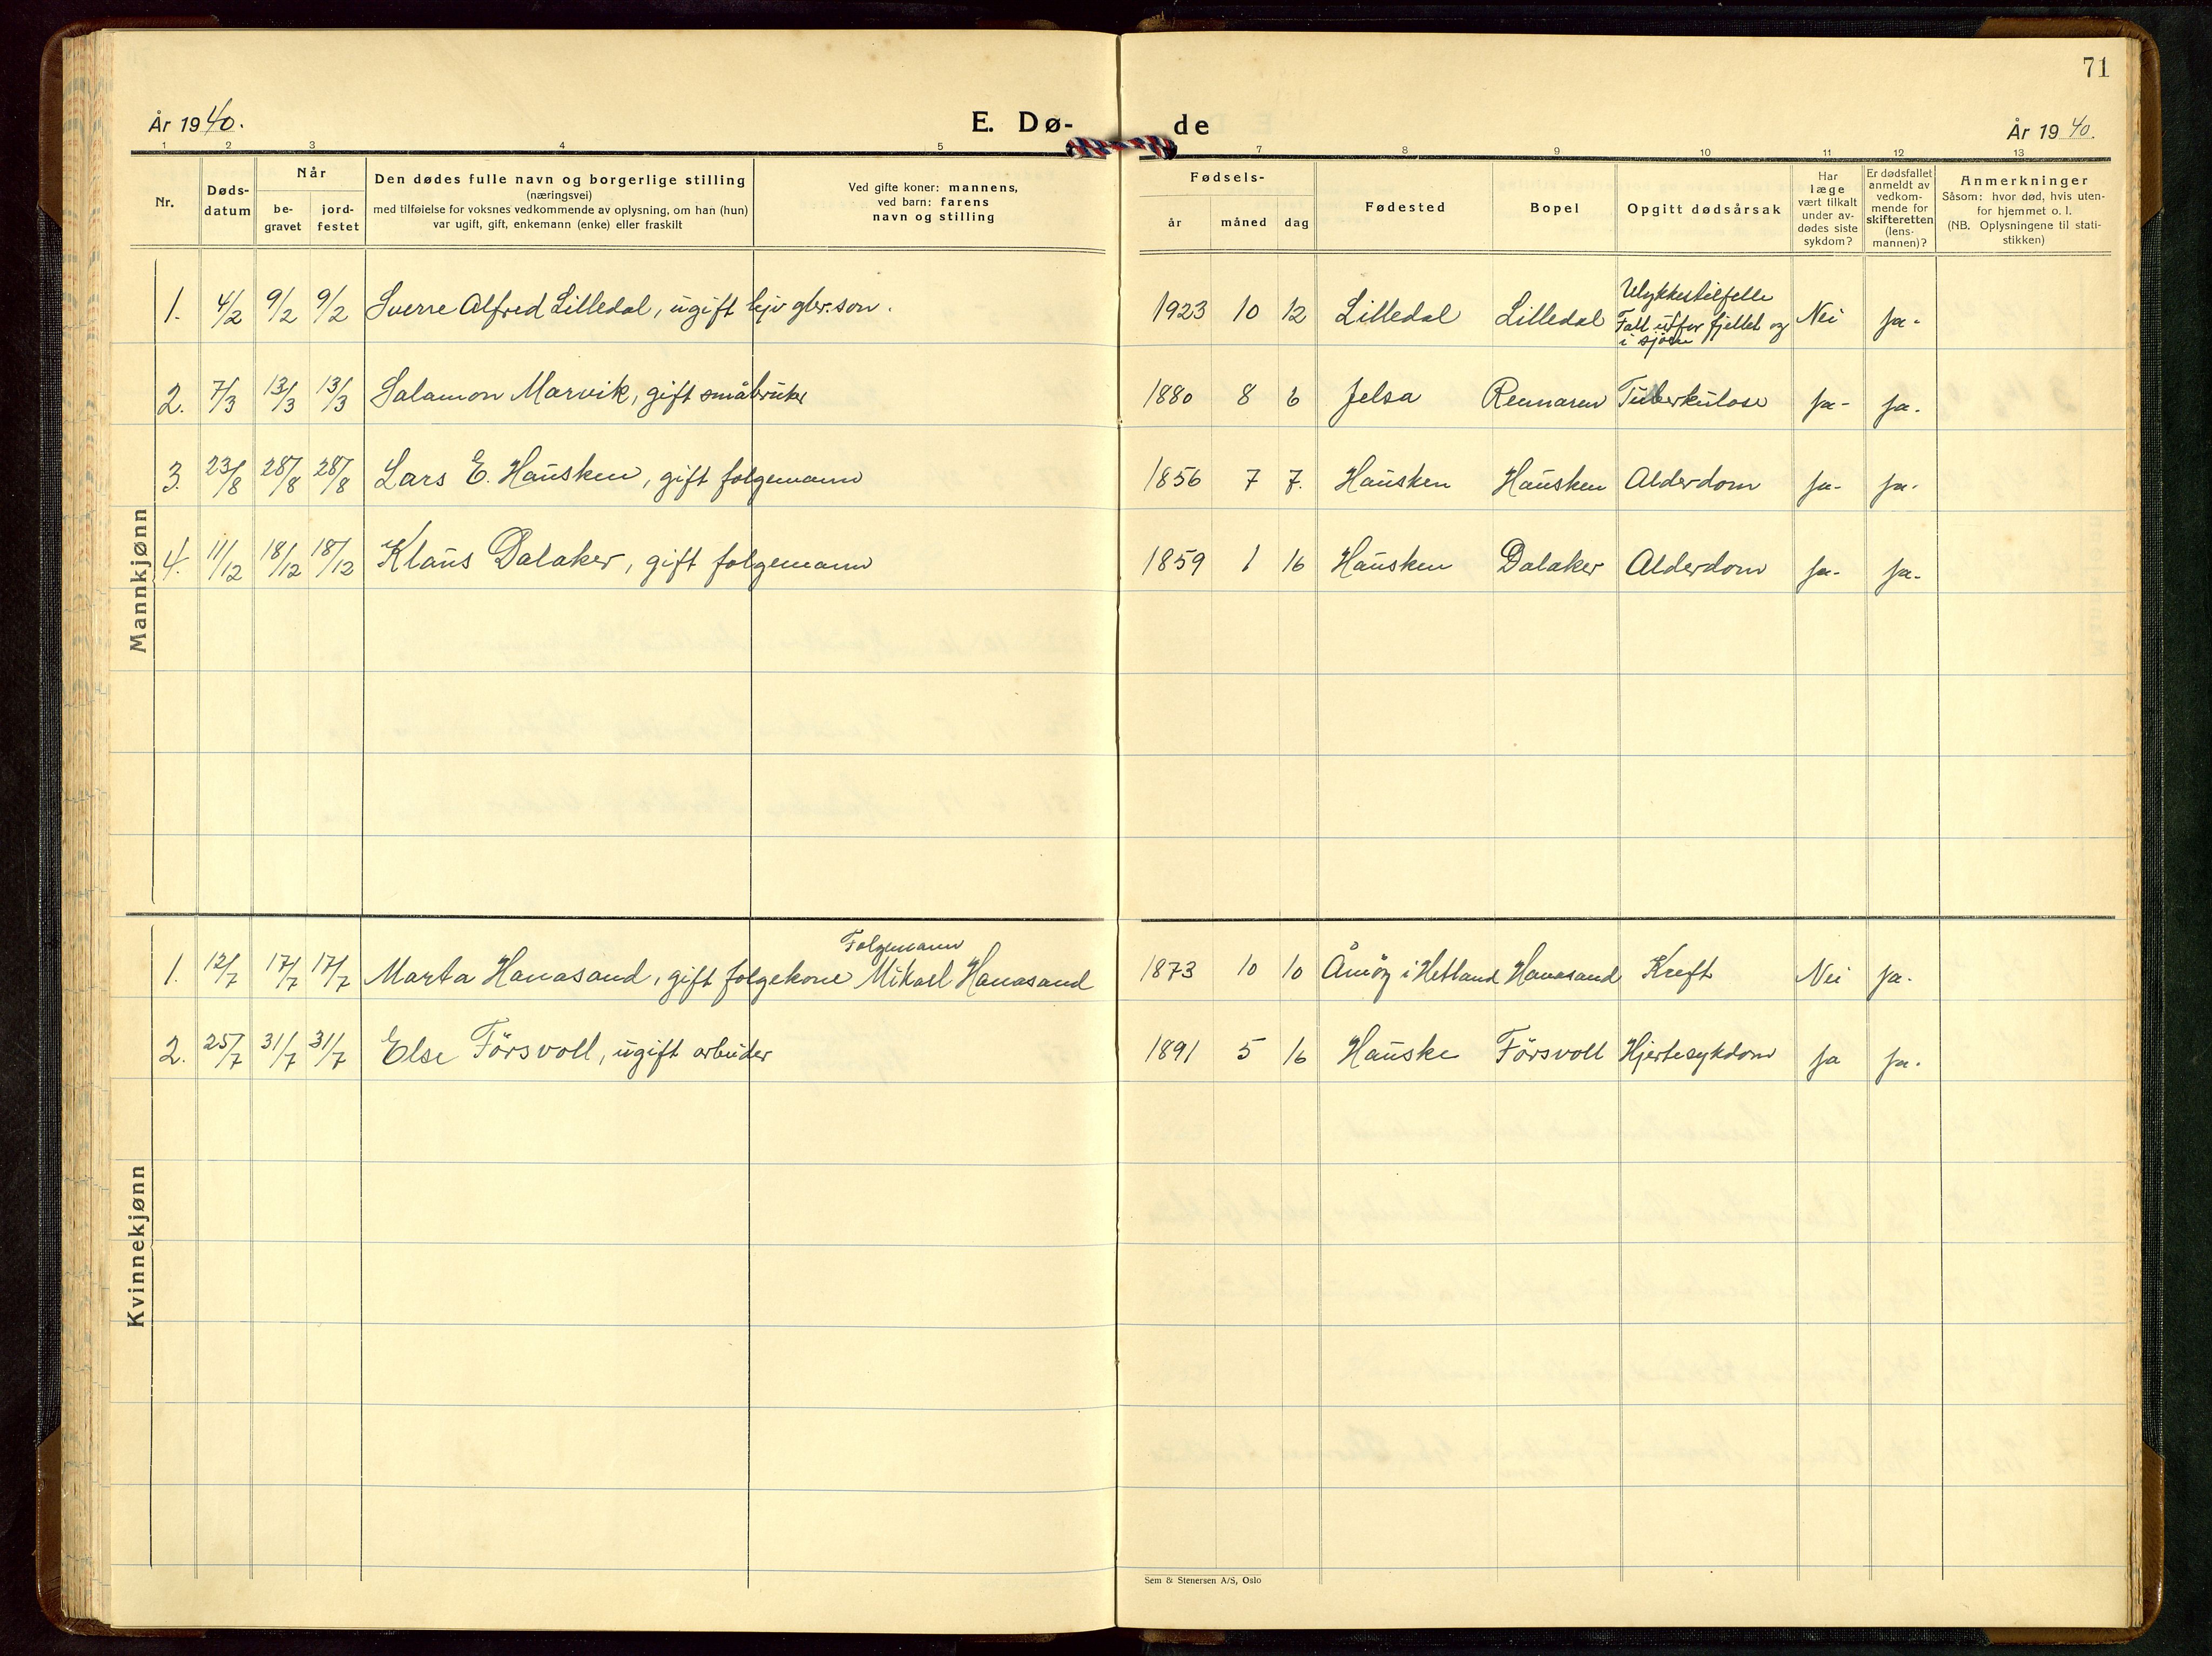 71
År 1940.
E. Dø-
de
År 1940.
1 2 3 4 5 7 8 9 10 11 12 13
Nr.
Døds-
datum
Når
be-
gravet
jord-
festet
Den dødes fulle navn og borgerlige stilling
(næringsvei)
med tilføielse for voksnes vedkommende av oplysning, om han (hun)
var ugift, gift, enkemann (enke) eller fraskilt
Ved gifte koner: mannens,
ved barn: farens
navn og stilling
Fødsels-
år måned dag
Fødested
Bopel
Opgitt dødsårsak
Har
læge
vært tilkalt
under av-
dødes siste
sykdom?
Er dødsfallet
anmeldt av
vedkom-
mende for
skifteretten
(lens-
mannen)?
Anmerkninger
Såsom: hvor død, hvis uten-
for hjemmet o. l.
(NB. Oplysningene til stati-
stikken)
Mannkjønn
1. 4/2 9/2 9/2 Sverre Alfred Lilledal, ugift hjv gbr.son. 1923 10 12 Lilledal Lilledal Ulykkestilfelle
Fall utfor fjellet og
i sjöen
Nei ja.
2. 7/3 13/3 13/3 Salamon Marvik, gift småbruker 1880 8 6 Jelsa Rennaren Tuberkulose ja- ja.
3. 23/8 28/8 28/8 Lars E. Hausken, gift folgemann 1856 7 7. Hausken Hausken Alderdom ja- ja.
4. 11/12 18/12 18/12 Klaus Dalaker, gift folgemann 1859 1 16 Hausken Dalaker Alderdom ja- ja-
Kvinnekjønn
Folgemann
1. 12/7 17/7 17/7 Marta Hanasand, gift folgekone Mikael Hanasand 1873 10 10 Åmöy i Hetland Hanasand Kreft Nei ja.
2. 25/7 31/7 31/7 Else Försvoll, ugift arbeider 1891 5 16 Hauske Försvoll Hjertesykdom ja ja.
Sem & Stenersen A/S, Oslo